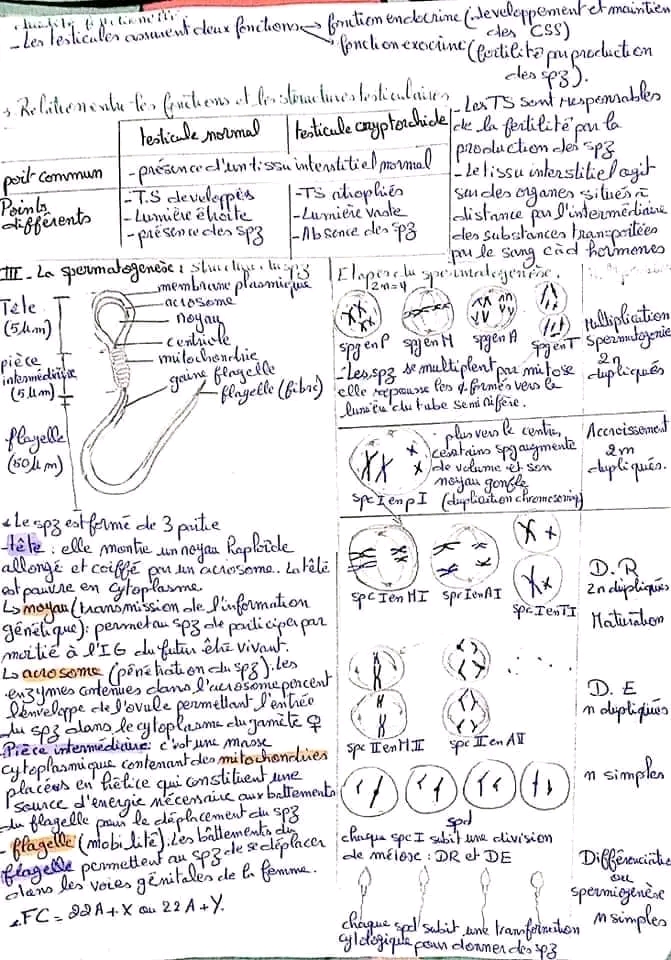 - Les testicules assurent deux fonctions → fonction endocrine (developpement et maintien des CSS)
→ fonction exocrine (fertilité par production des spz).
Relation entre les fonctions et les structures testiculaires
testicule normal
testicule cryptorchide
poit commun
- présence d'un tissu interstitiel normal
Points différents
- T.S developpés
- Lumière étroite
- présence des spz
- TS atrophiés
- Lumière vaste
- Absence des spz
- Les TS sont responsables
de la fertilité par la
production des spz
- Le tissu interstitiel agit
sur des organes situés à
distance par l'intermédiaire
des substances transportées
par le sang càd hormones
III - La spermatogenèse : structure du spz
Tête
(5μm)
pièce
intermédiaire
(5μm)
flagelle
(50μm)
membrane plasmique
acrosome
noyau
centriole
mitochondrie
gaine flagelle
flagelle (fibre)
Le spz est formé de 3 partie
- tête : elle montre un noyau haploïde
allongé et coiffé par un acrosome. La tête
est pauvre en cytoplasme.
↳ noyau (transmission de l'information
génétique) : permet au spz de participer par
moitié à l'IG du futur être vivant.
↳ acrosome (pénétration du spz). Les
enzymes contenues dans l'acrosome percent
l'enveloppe de l'ovule permettant l'entrée
du spz dans le cytoplasme du gamète ♀
- Pièce intermédiaire : c'est une masse
cytoplasmique contenant des mitochondries
placées en hélice qui constituent une
source d'énergie nécessaire aux battements
du flagelle pour le déplacement du spz
- flagelle (mobilité). Les battements du
flagelle permettent au spz de se déplacer
dans les voies génitales de la femme.
FC = 22A + X ou 22A + Y.
Etapes du spermatogenèse.
2n=4
spg en P
spg en M
spg en A
spg en T
- Les spg se multiplent par mitose
elle repousse les ¢ formés vers le
lumière du tube seminifère.
Multiplication
Spermatogonie
2n
dupliqués
spc I en p I
plus vers le centre,
certains spg augmente
de volume et son
noyau gonfle
(duplication chromosomiq)
Accroissement
2n
dupliqués.
spc I en M I
spc I en A I
spc I en T I
D.R
2n dupliqués
Maturation
spc II en M II
spc II en A II
D.E
n dupliqués
spd
n simples
chaque spc I subit une division
de méiose : DR et DE
chaque spd subit une transformation
cytologique pour donner des spz
Différenciation
ou
spermiogenèse
n simples